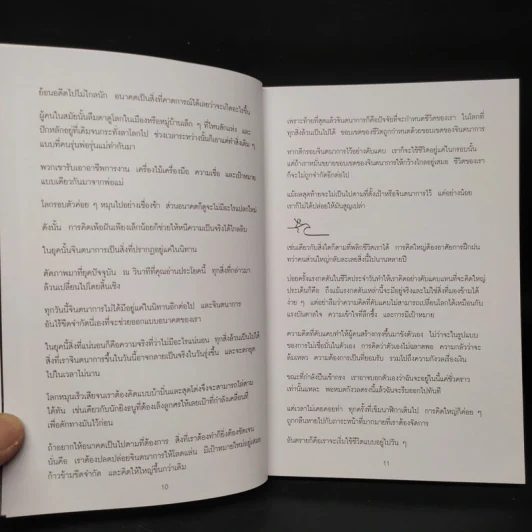 ย้อนอดีตไปไม่ไกลนัก อนาคตเป็นสิ่งที่คาดการณ์ได้เลยว่าจะเกิดอะไรขึ้น
ผู้คนในสมัยนั้นลืมตาดูโลกในเมืองหรือหมู่บ้านเล็ก ๆ ที่ไหนสักแห่ง และ
ปักหลักอยู่ที่เดิมจนกระทั่งลาโลกไป ช่วงเวลาระหว่างนั้นก็เอาแต่ทำสิ่งเดิม ๆ
แบบที่คนรุ่นพ่อรุ่นแม่ทำกันมา
พวกเขารับเอาอาชีพการงาน เครื่องไม้เครื่องมือ ความเชื่อ และเป้าหมาย
แบบเดียวกันมาจากพ่อแม่
โลกรอบตัวค่อย ๆ หมุนไปอย่างเชื่องช้า ส่วนอนาคตก็ดูจะไม่มีอะไรแปลกใหม่
ดังนั้น การคิดเพ้อฝันเพียงเล็กน้อยก็ช่วยให้หนีความเป็นจริงได้ไกลลิบ
ในยุคนั้นจินตนาการเป็นสิ่งที่ปรากฏอยู่แค่ในนิทาน
ตัดภาพมาที่ยุคปัจจุบัน ณ วินาทีที่คุณอ่านประโยคนี้ ทุกสิ่งที่กล่าวมา
ล้วนเปลี่ยนไปโดยสิ้นเชิง
ทุกวันนี้จินตนาการไม่ได้มีอยู่แค่ในนิทานอีกต่อไป และจินตนาการ
อันไร้ขีดจำกัดนี่เองที่จะช่วยออกแบบอนาคตของเรา
ในยุคนี้สิ่งที่แน่นอนก็คือความจริงที่ว่าไม่มีอะไรแน่นอน ทุกสิ่งล้วนเป็นไปได้
สิ่งที่เราจินตนาการขึ้นในวันนี้อาจกลายเป็นจริงในวันรุ่งขึ้น และจะตกยุค
ไปในเวลาไม่นาน
โลกหมุนเร็วเสียจนเราต้องคิดแบบบ้าบิ่นและสุดโต่งจึงจะสามารถไล่ตาม
ได้ทัน เช่นเดียวกับนักยิงธนูที่ต้องเล็งลูกศรให้เลยเป้าที่กำลังเคลื่อนที่
เพื่อดักทางมันไว้ก่อน
ถ้าอยากให้อนาคตเป็นไปตามที่ต้องการ สิ่งที่เราต้องทำก็ยิ่งชัดเจน
นั่นคือ เราต้องปลดปล่อยจินตนาการให้โลดแล่น มีเป้าหมายใหญ่อยู่เสมอ
ก้าวข้ามขีดจำกัด และคิดให้ใหญ่ขึ้นกว่าเดิม
10
เพราะท้ายที่สุดแล้วจินตนาการก็คือปัจจัยที่จะกำหนดชีวิตของเรา ในโลกที่
ทุกสิ่งล้วนเป็นไปได้ ขอบเขตของชีวิตถูกกำหนดด้วยขอบเขตของจินตนาการ
หากตีกรอบจินตนาการไว้อย่างคับแคบ เราก็จะใช้ชีวิตอยู่แค่ในกรอบนั้น
แต่ถ้าเราหมั่นขยายขอบเขตของจินตนาการให้กว้างไกลอยู่เสมอ ชีวิตของเรา
ก็จะไม่ถูกจำกัดอีกต่อไป
แม้ผลสุดท้ายจะไม่เป็นไปตามที่ตั้งเป้าหรือจินตนาการไว้ แต่อย่างน้อย
เราก็ไม่ได้ปล่อยให้มันสูญเปล่า
เช่นเดียวกับสิ่งใดก็ตามที่พลิกชีวิตเราได้ การคิดใหญ่ต้องอาศัยการฝึกฝน
ทว่าคนส่วนใหญ่กลับละเลยสิ่งนี้ไปนานหลายปี
บ่อยครั้งแรงกดดันในชีวิตประจำวันทำให้เราคิดอย่างคับแคบแทนที่จะคิดใหญ่
ประเด็นก็คือ ถึงแม้แรงกดดันเหล่านี้จะมีอยู่จริงและไม่ใช่สิ่งที่มองข้ามได้
ง่าย ๆ แต่อย่าลืมว่าความคิดที่คับแคบไม่สามารถเปลี่ยนโลกได้เหมือนกับ
แรงบันดาลใจ ความเข้าใจที่ลึกซึ้ง และการลงมือทำ
ความคิดที่คับแคบทำให้ผู้คนสร้างกรงขึ้นมาขังตัวเอง ไม่ว่าจะในรูปแบบ
ของการไม่เชื่อมั่นในตัวเอง การคิดว่าตัวเองไม่ฉลาดพอ ความกลัวว่าจะ
ล้มเหลว ความต้องการเป็นที่ยอมรับ รวมไปถึงความกังวลเรื่องเงิน
ขณะที่กำลังเป็นเช่นนั้น เราอาจบอกตัวเองว่าฉันจะอยู่ในนี้แค่ชั่วคราว
เท่านั้นแหละ พอหมดกังวลตรงนี้แล้วฉันจะรีบออกไปทันที
แต่เวลาไม่เคยคอยท่า ทุกครั้งที่เข็มนาฬิกาเดินไป การคิดใหญ่ก็ค่อย ๆ
ถูกกลืนหายไปกับภาระหน้าที่มากมายที่เราต้องจัดการ
อันตรายก็คือเราจะเริ่มใช้ชีวิตแบบอยู่ไปวัน ๆ
11